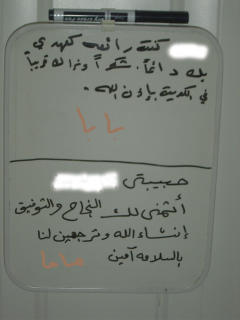 كنتِ رائعه كعهدي
بك دائماً. شكراً ونراك قريباً
في الكويت بإذن الله.
بابا
حبيبتي
أتمنى لك النجاح والتوفيق
إنشاء الله وترجعين لنا
بالسلامه آمين
ماما